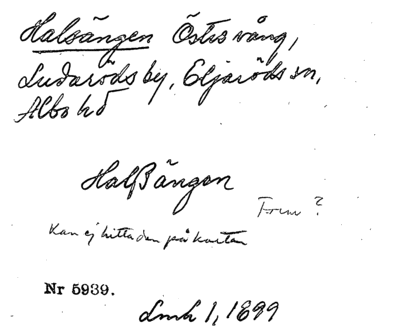 Halsängen Östis vång,
Ludaröds by, Eljaröds sn,
Albo hd
Halßängen
Form ?
Kan ej hitta den på kartan
Nr 5939.
Lmh 1, 1899